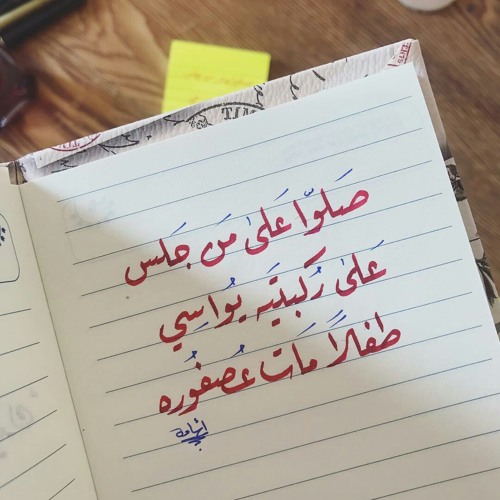 صَلوّا عَلىٰ مَن جَلس
عَلىٰ رُكبتيَه يُواسِي
طفلاً مَات عُصفُوره